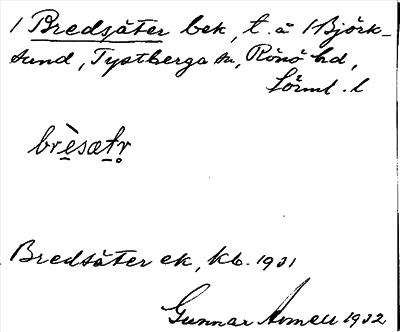 1 Bredsäter bek, t. ä 1 Björk-
sund, Tystberga sn, Rönö hd,
Sörml. l
brèsætr̥
Bredsäter ek, kb. 1931
Gunnar 1932